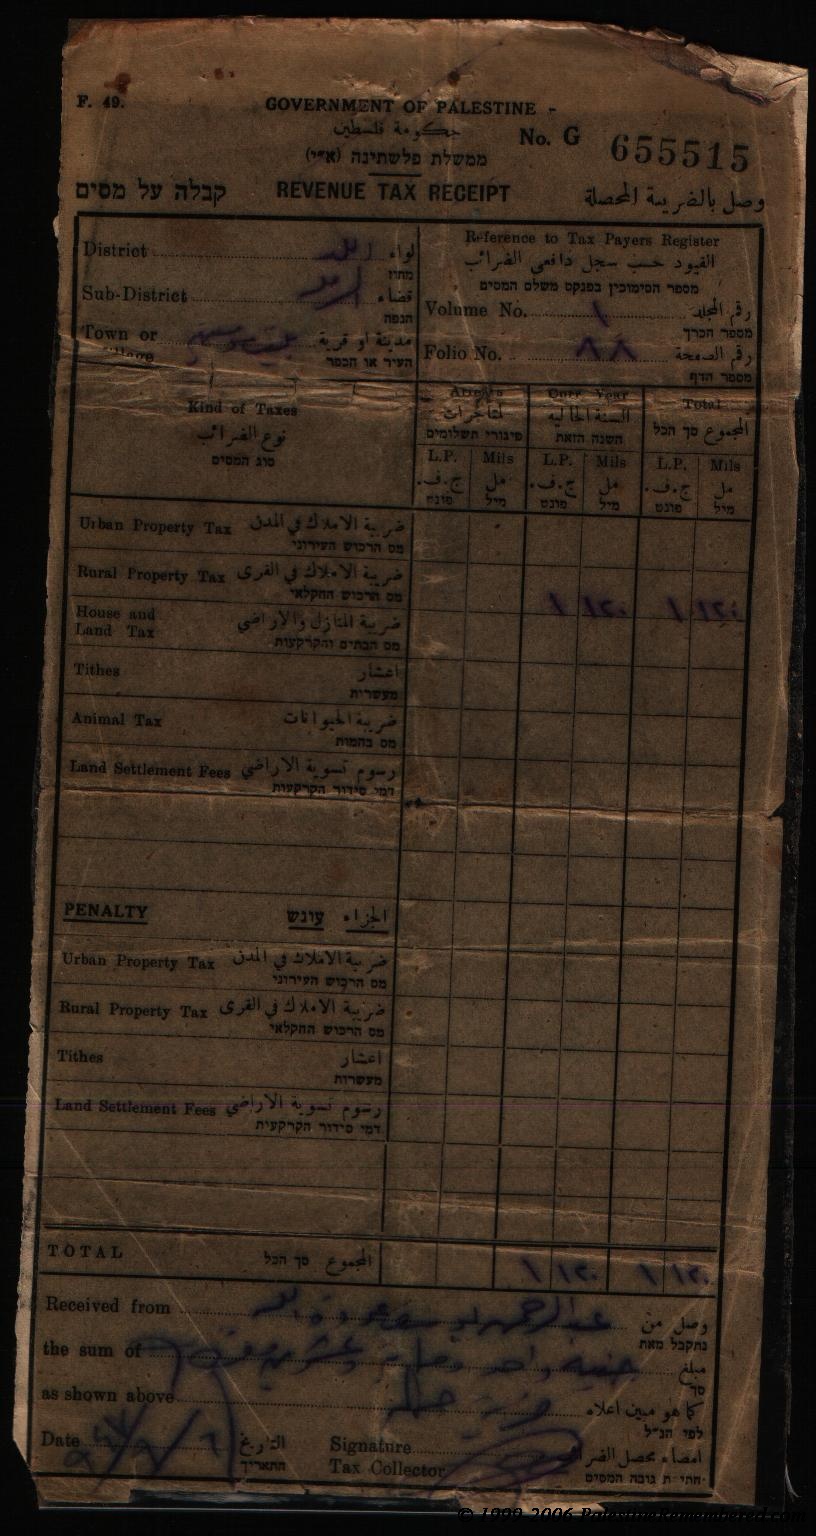 F. 49.
GOVERNMENT OF PALESTINE
حكومة فلسطين
ממשלת פלשתינה (א״י)
No. G 655515
קבלה על מסים REVENUE TAX RECEIPT وصل بالضريبة المحصلة
District لواء
מחוז
Sub-District قضاء
הנפה
Town or مدينة او قرية
העיר או הכפר
Reference to Tax Payers Register
القيود حسب سجل دافعي الضرائب
מספר הסימוכין בפנקס משלם המסים
Volume No. ١ رقم المجلد
מספר הכרך
Folio No. ٨٨ رقم الصفحة
מספר הדף
Kind of Taxes
نوع الضرائب
סוג המסים
Arrears Curr. Year Total
متأخرات السنة الحالية المجموع סך הכל
פיגורי תשלומים השנה הזאת
L.P. Mils L.P. Mils L.P. Mils
ج.ف. مل ج.ف. مل ج.ف. مل
פונט מיל פונט מיל פונט מיל
Urban Property Tax ضريبة الاملاك في المدن
מס הרכוש העירוני
Rural Property Tax ضريبة الاملاك في القرى
מס הרכוש החקלאי
١ ١٢٠ ١ ١٢٠
House and
Land Tax ضريبة المنازل والاراضي
מס הבתים והקרקעות
Tithes اعشار
מעשרות
Animal Tax ضريبة الحيوانات
מס בהמות
Land Settlement Fees رسوم تسوية الاراضي
דמי סידור הקרקעות
PENALTY עונש الجزاء
Urban Property Tax ضريبة الاملاك في المدن
מס הרכוש העירוני
Rural Property Tax ضريبة الاملاك في القرى
מס הרכוש החקלאי
Tithes اعشار
מעשרות
Land Settlement Fees رسوم تسوية الاراضي
דמי סידור הקרקעית
TOTAL סך הכל المجموع ١ ١٢٠ ١ ١٢٠
Received from عبد الرحمن وصل من
נתקבל מאת
the sum of جنيه واحد وماية وعشرين مبلغ
סך
as shown above كما هو مبين اعلاه
לפי הנ״ל
Date التاريخ
התאריך
Signature امضاء محصل الضرائب
Tax Collector חתימת גובה המסים
© 1999-2006 PalestineRemembered.com